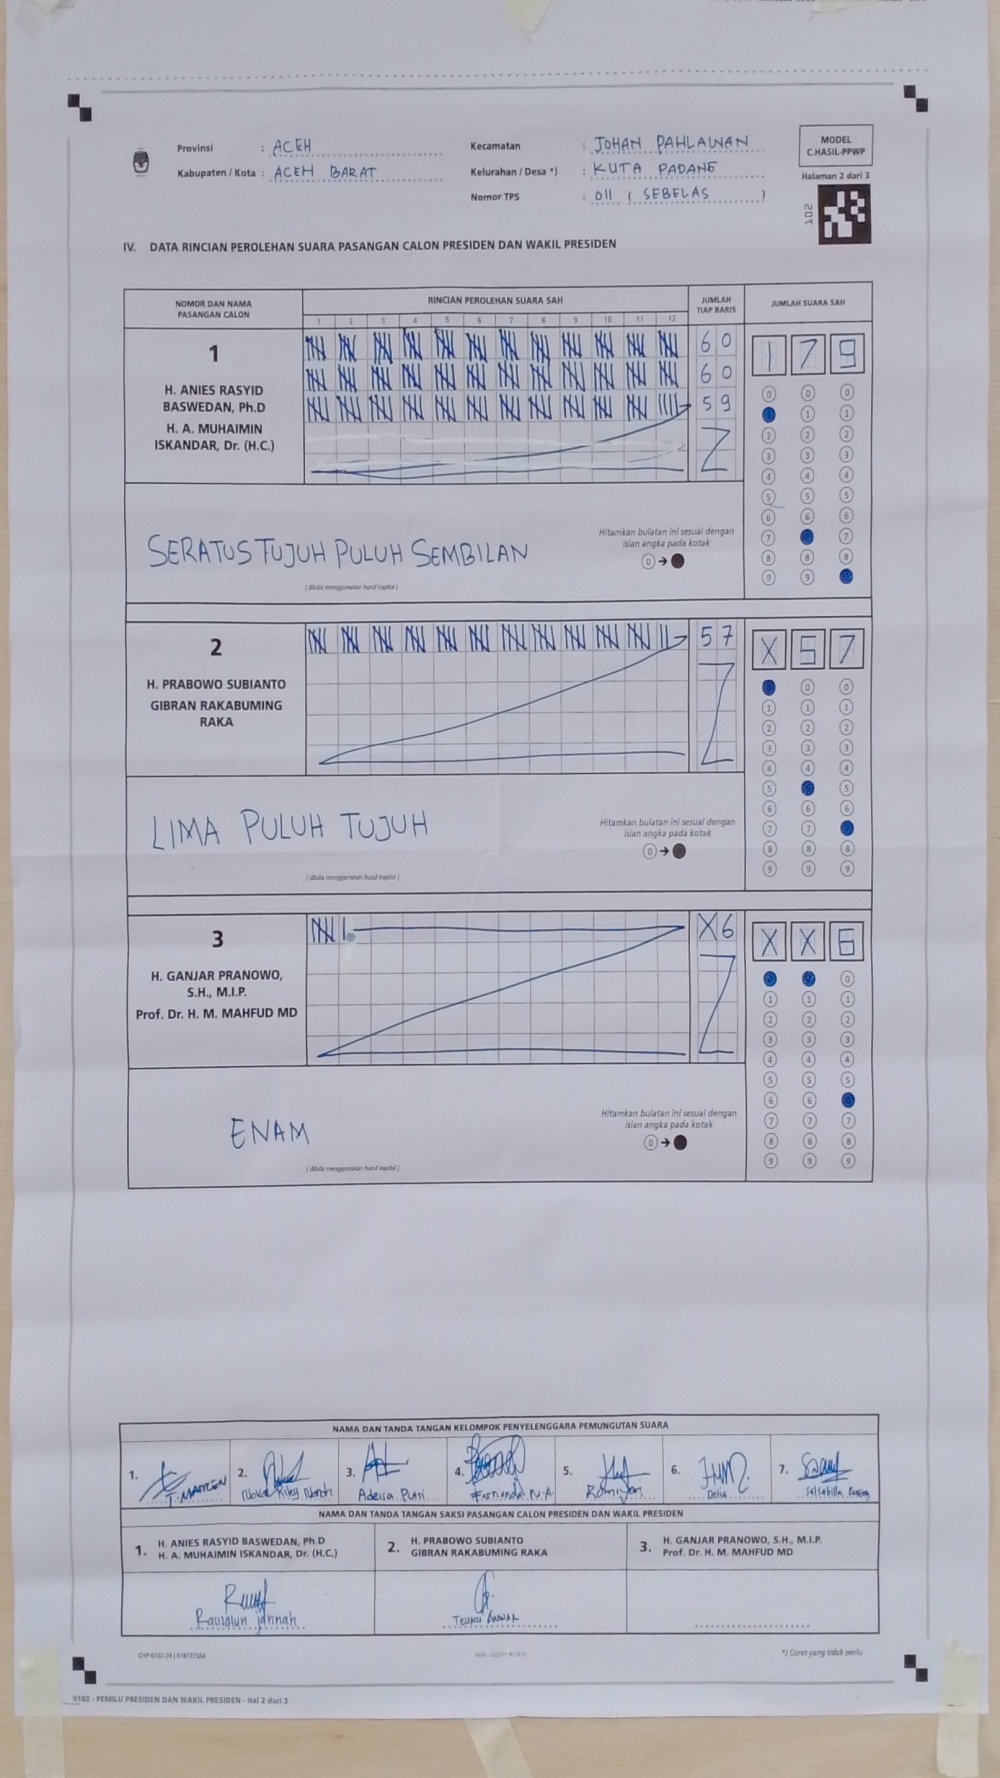 Provinsi : ACEH
Kabupaten / Kota : ACEH BARAT
Kecamatan : JOHAN PAHLAWAN
Kelurahan / Desa *) : KUTA PADANG
Nomor TPS : 011 ( SEBELAS )
MODEL
C.HASIL-PPWP
Halaman 2 dari 3
102
IV. DATA RINCIAN PEROLEHAN SUARA PASANGAN CALON PRESIDEN DAN WAKIL PRESIDEN
NOMOR DAN NAMA
PASANGAN CALON
RINCIAN PEROLEHAN SUARA SAH
1 2 3 4 5 6 7 8 9 10 11 12
JUMLAH
TIAP BARIS
JUMLAH SUARA SAH
1
H. ANIES RASYID
BASWEDAN, Ph.D
H. A. MUHAIMIN
ISKANDAR, Dr. (H.C.)
60
60
59
1 7 9
0 0 0
1 1
2 2 2
3 3 3
4 4 4
5 5 5
6 6 6
7 7
8 8 8
9 9
SERATUS TUJUH PULUH SEMBILAN
(ditulis menggunakan huruf kapital)
Hitamkan bulatan ini sesuai dengan
isian angka pada kotak
0 →
2
H. PRABOWO SUBIANTO
GIBRAN RAKABUMING
RAKA
57
X 5 7
0 0
1 1 1
2 2 2
3 3 3
4 4 4
5 5
6 6 6
7 7
8 8 8
9 9 9
LIMA PULUH TUJUH
(ditulis menggunakan huruf kapital)
Hitamkan bulatan ini sesuai dengan
isian angka pada kotak
0 →
3
H. GANJAR PRANOWO,
S.H., M.I.P.
Prof. Dr. H. M. MAHFUD MD
X6
X X 6
0
1 1 1
2 2 2
3 3 3
4 4 4
5 5 5
6 6
7 7 7
8 8 8
9 9 9
ENAM
(ditulis menggunakan huruf kapital)
Hitamkan bulatan ini sesuai dengan
isian angka pada kotak
0 →
NAMA DAN TANDA TANGAN KELOMPOK PENYELENGGARA PEMUNGUTAN SUARA
1. 2. 3. Adelia Putri 4. 5. 6. Delia 7. Salsabilla
NAMA DAN TANDA TANGAN SAKSI PASANGAN CALON PRESIDEN DAN WAKIL PRESIDEN
1. H. ANIES RASYID BASWEDAN, Ph.D
H. A. MUHAIMIN ISKANDAR, Dr. (H.C.)
2. H. PRABOWO SUBIANTO
GIBRAN RAKABUMING RAKA
3. H. GANJAR PRANOWO, S.H., M.I.P.
Prof. Dr. H. M. MAHFUD MD
jannah
TEUKU
*) Coret yang tidak perlu
0102 - PEMILU PRESIDEN DAN WAKIL PRESIDEN - Hal 2 dari 3